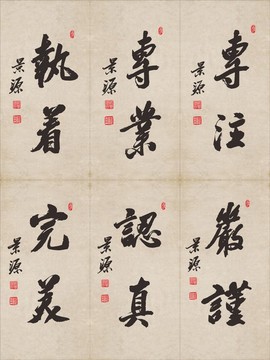 專注
景源
專業
景源
執着
景源
嚴謹
景源
認真
景源
完美
景源